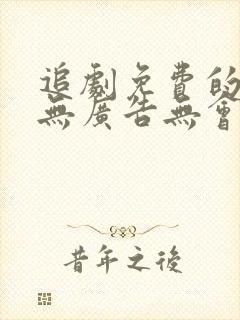 追劇免費的
無廣告無會
昔年之後